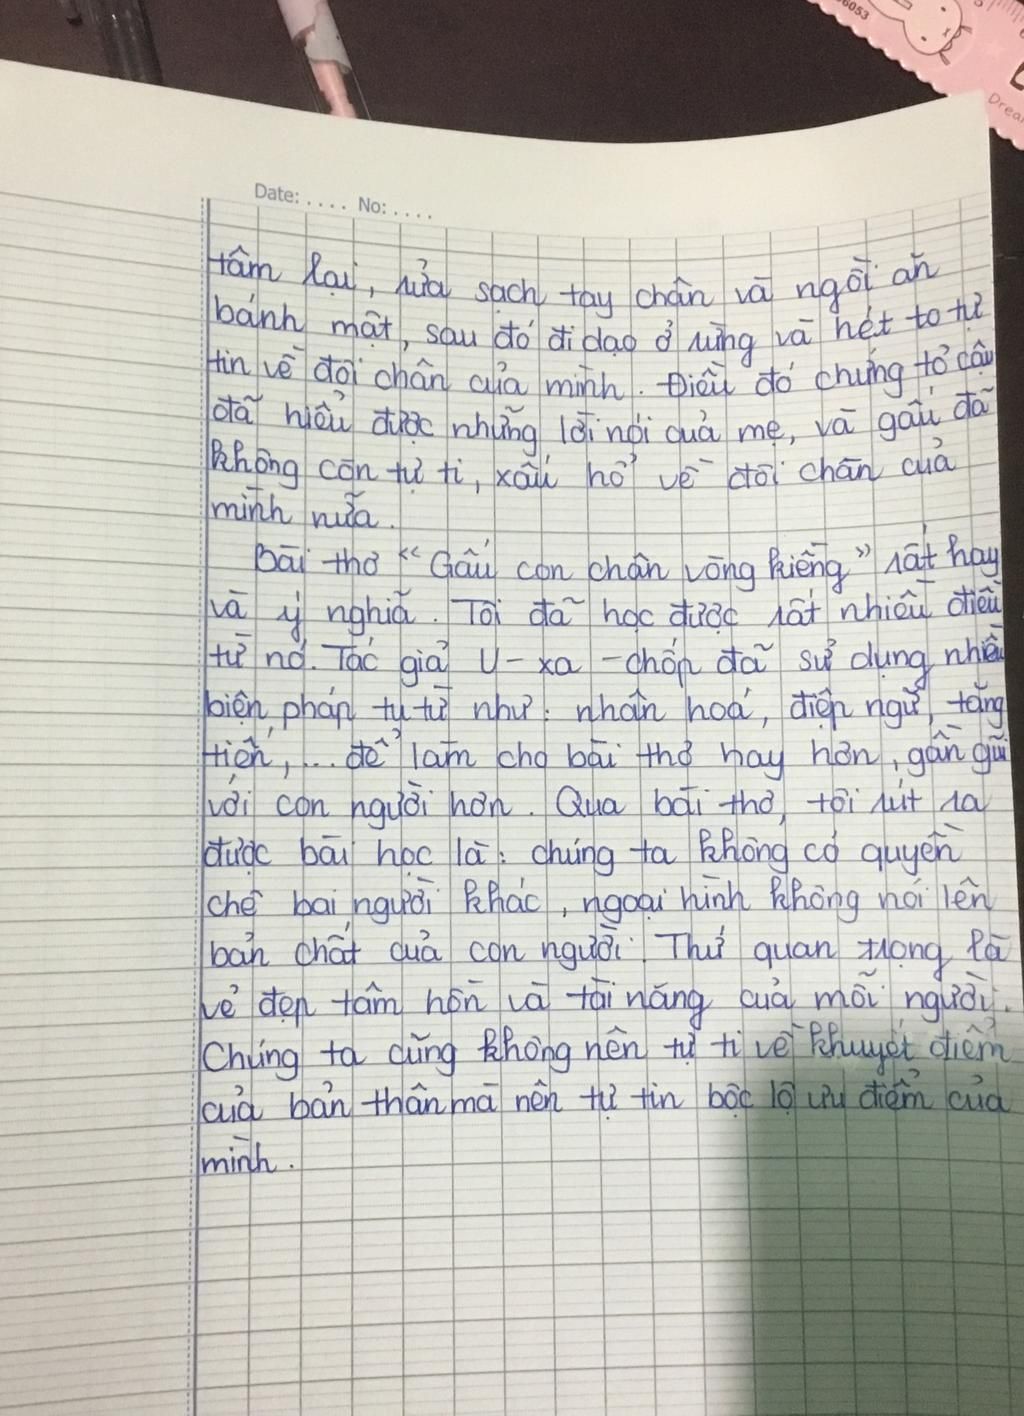 6053
Date: .... No: ....
tâm lại, rửa sạch tay chân và ngồi ăn
bánh mật, sau đó đi dạo ở rừng và hét to tự
tin về đôi chân của mình. Điều đó chứng tỏ cậu
đã hiểu được những lời nói của mẹ, và gấu đã
không còn tự ti, xấu hổ về đôi chân của
mình nữa.
Bài thơ "Gấu con chân vòng kiềng" rất hay
và ý nghĩa. Tôi đã học được rất nhiều điều
từ nó. Tác giả U-xa-chốp đã sử dụng nhiều
biện pháp tu từ như: nhân hoá, điệp ngữ, tăng
tiến,... để làm cho bài thơ hay hơn, gần gũi
với con người hơn. Qua bài thơ, tôi rút ra
được bài học là: chúng ta không có quyền
chê bai người khác, ngoại hình không nói lên
bản chất của con người. Thứ quan trọng là
vẻ đẹp tâm hồn và tài năng của mỗi người.
Chúng ta cũng không nên tự ti về khuyết điểm
của bản thân mà nên tự tin bộc lộ ưu điểm của
mình.